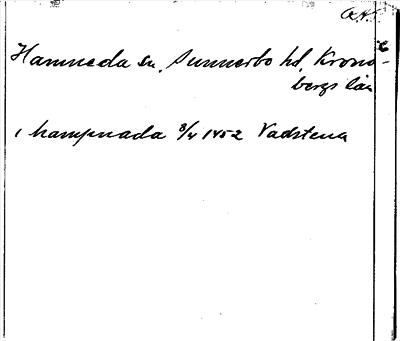 Hamneda sn, Sunnerbo hd, Krono-
bergs län
i hampnada 8/4 1452 Vadstena